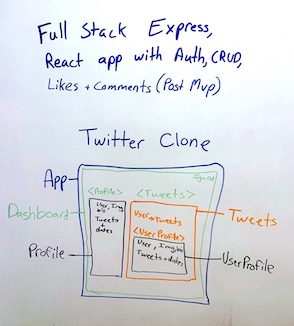 Full Stack Express,
React app with Auth, CRUD,
Likes + Comments (Post Mvp)
Twitter Clone
App
Sign out
Dashboard
<Profile>
<Tweets>
User, Img
Tweets
+
dates
User → Tweets
<UserProfile>
User, Img, bio
Tweets + dates
Tweets
Profile
UserProfile